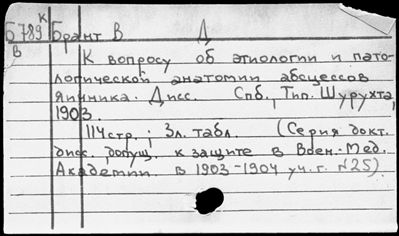 Б789 к Брант В Д
В К вопросу об этиологии и пато-
логической анатомии абсцессов
яичника. Дисс. Спб., Тип. Шурухта,
1903.
114стр.; 3л. табл. (Серия докт.
дисс., допущ. к защите в Воен.-Мед.
Академии в 1903-1904 уч. г. №25).